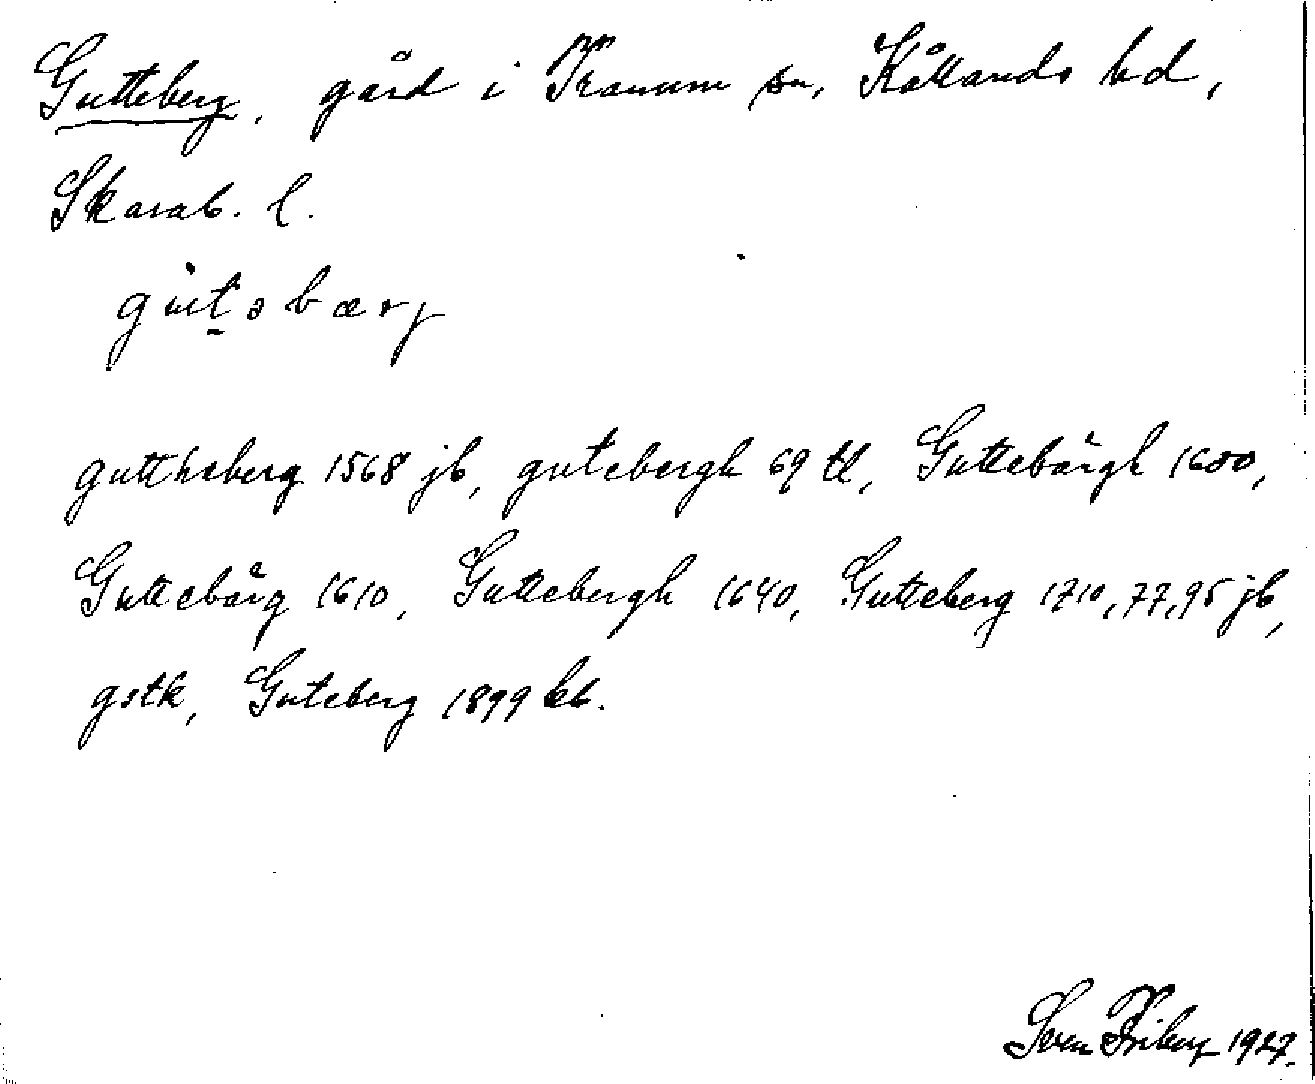 Gutteberg, gård i Tranum sn, Kållands hd,
Skarab. l.
gùt̠əbærj
guttheberg 1568 jb, gutebergh 69 tl, Guttebärgh 1600,
Guttebärg 1610, Guttebergh 1640, Gutteberg 1710, 77, 95 jb,
gstk, Guteberg 1899 kb.
Sven Friberg 1927.